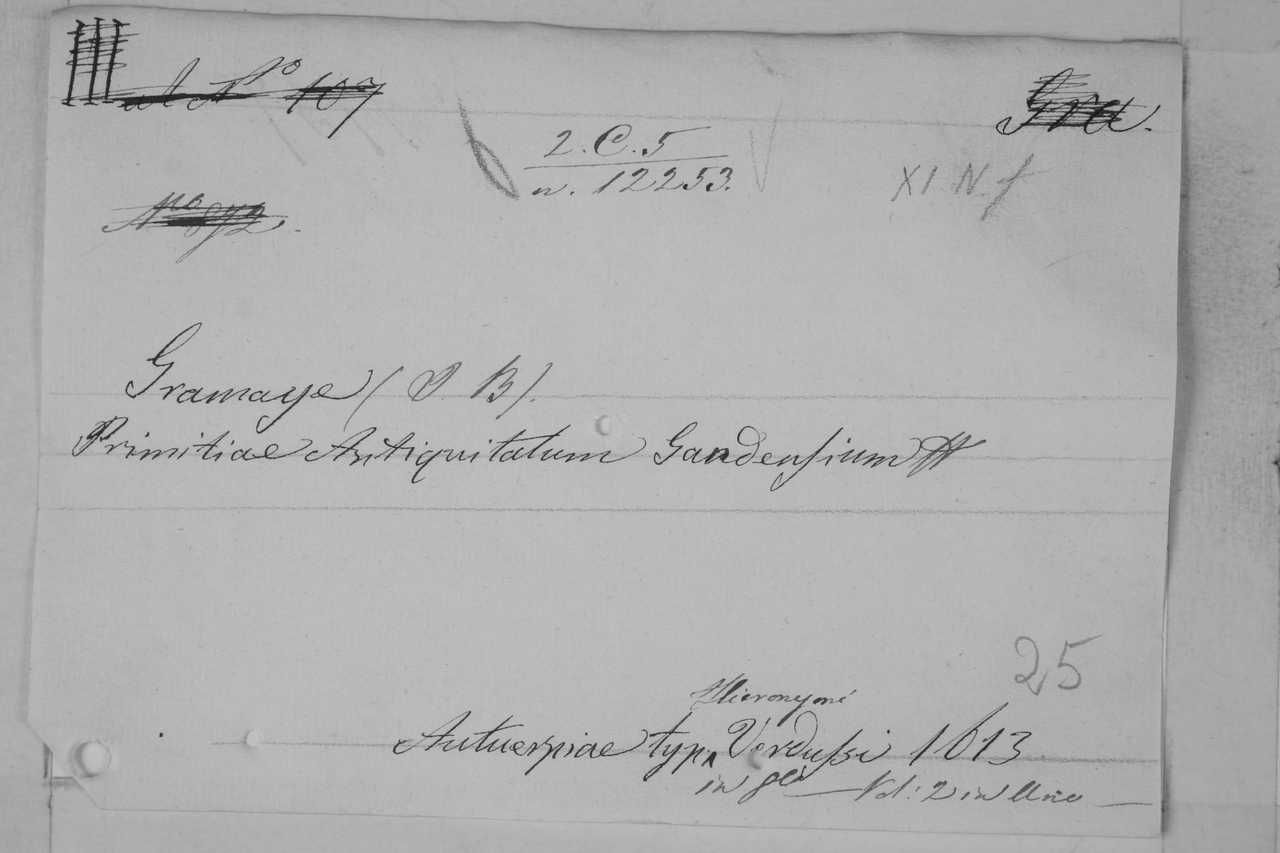 al No 107
Gra.
2. C. 5
n. 12253.
XI N. f
No 892.
Gramaye (J. B).
Primitiae Antiquitatum Gandensium
25
Hieronymi
Antuerpiae typ Verdussi 1613
in Vol: 2 in Uno